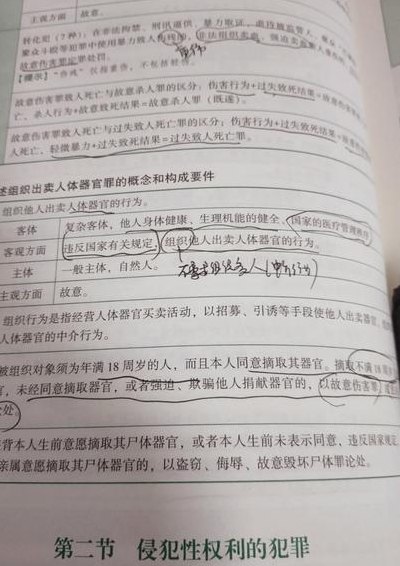 主观方面 故意。
转化犯(7种):在非法拘禁、刑讯逼供、暴力取证、虐待被监管人、
聚众斗殴等犯罪中使用暴力致人伤残的,非法组织卖血、强迫卖血
故意伤害罪定罪处罚。
重伤
【提示】"伤残"仅指重伤,不包括轻伤。
故意伤害罪致人死亡与故意杀人罪的区分:伤害行为+过失致死结果=故意伤害
亡、杀人行为+故意致死结果=故意杀人罪(既遂)。
故意伤害罪致人死亡与过失致人死亡罪的区分:伤害行为+过失致死结果=
人死亡、轻微暴力+过失致死结果=过失致人死亡罪。
述组织出卖人体器官罪的概念和构成要件
组织他人出卖人体器官的行为。
客体 复杂客体,他人身体健康、生理机能的健全、国家的医疗管理秩序
客观方面 违反国家有关规定,组织他人出卖人体器官的行为。
主体 一般主体,自然人。
主观方面 故意。
组织行为是指经营人体器官买卖活动,以招募、引诱等手段使他人出卖器官,
人体器官的中介行为。
被组织对象须为年满18周岁的人,而且本人同意摘取其器官。摘取不满18周
官,未经同意摘取器官,或者强迫、欺骗他人捐献器官的,以故意伤害罪
处。
背本人生前意愿摘取其尸体器官,或者本人生前未表示同意,违反国家规定,
亲属意愿摘取其尸体器官的,以盗窃、侮辱、故意毁坏尸体罪论处。
第二节 侵犯性权利的犯罪